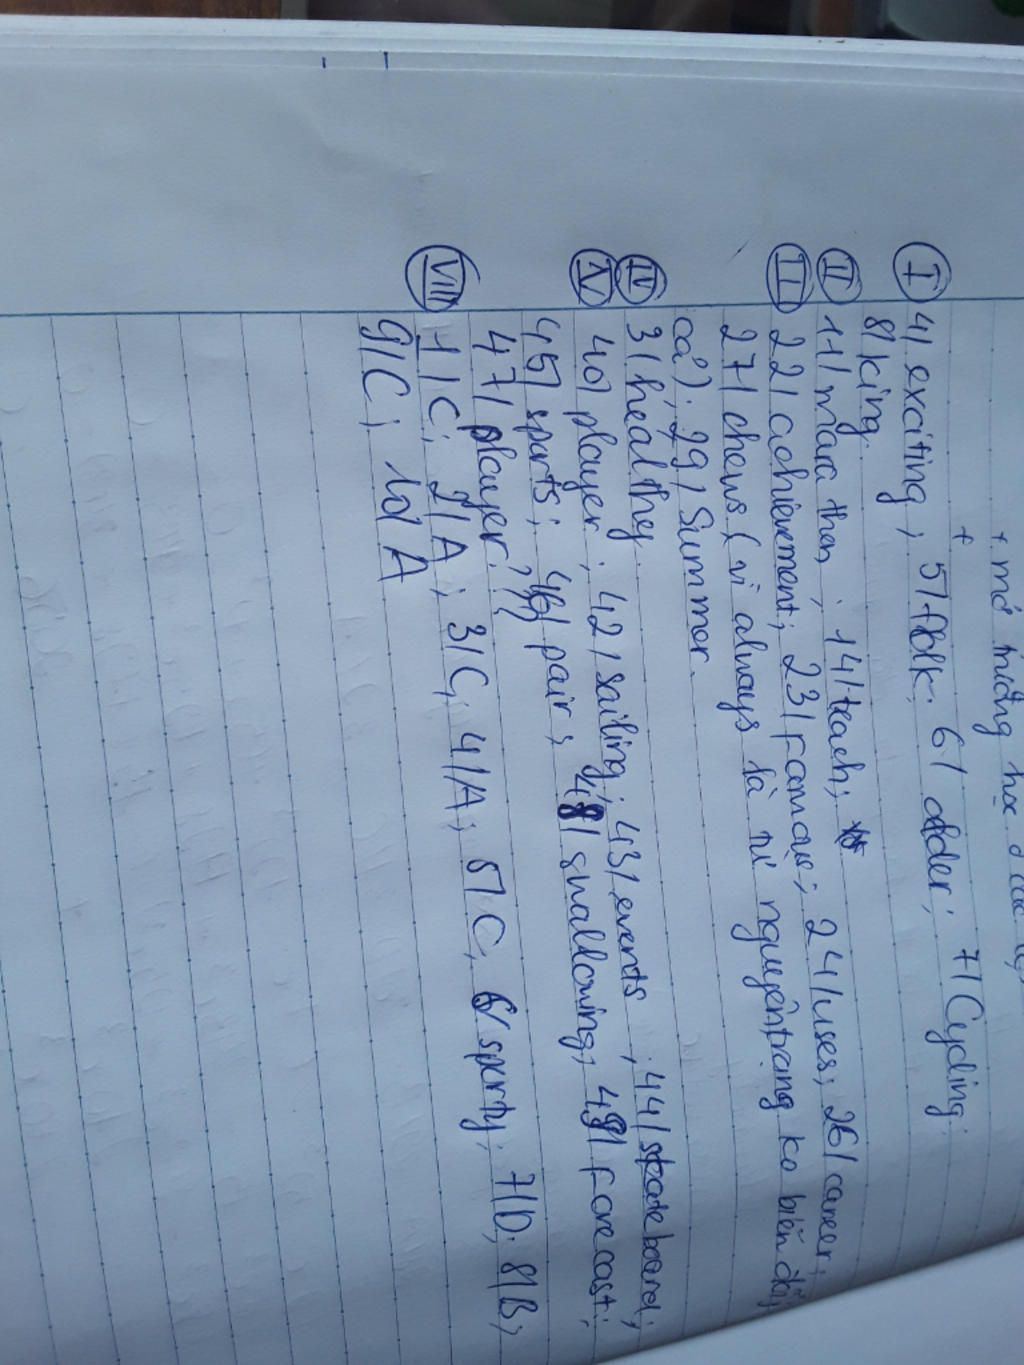 + mở trường học ở các
+
I 4/ exciting ; 5/ folk. 6/ older ; 7/ Cycling ;
8/ king.
II 11/ mara then ; 14/ teach ;
III 22/ achievement ; 23/ famous ; 24/ uses ; 26/ career ;
27/ chews ( vì always là từ nguyên trạng ko biến đổi
cả) ; 29/ Summer.
IV 3/ healthey.
V 40/ player ; 42/ sailing ; 43/ events ; 44/ skateboard ;
45/ sports ; 46/ pair ; 48/ snallowing ; 49/ forecast ;
47/ player ???
VIII 1/ C ; 2/ A ; 3/ C ; 4/ A ; 5/ C ; 6/ sporty ; 7/ D ; 8/ B ;
9/ C ; 10/ A